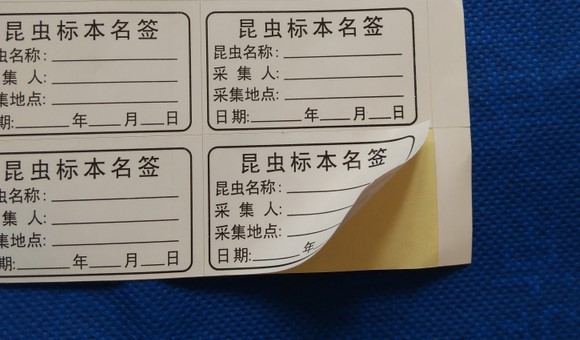 昆虫标本名签
虫名称:
集 人:
集地点:
期: 年 月 日
昆虫标本名签
昆虫名称:
采 集 人:
采集地点:
日期: 年 月 日
昆虫标本名签
虫名称:
集 人:
集地点:
期: 年 月 日
昆虫标本名签
昆虫名称:
采 集 人:
采集地点:
日期: 年